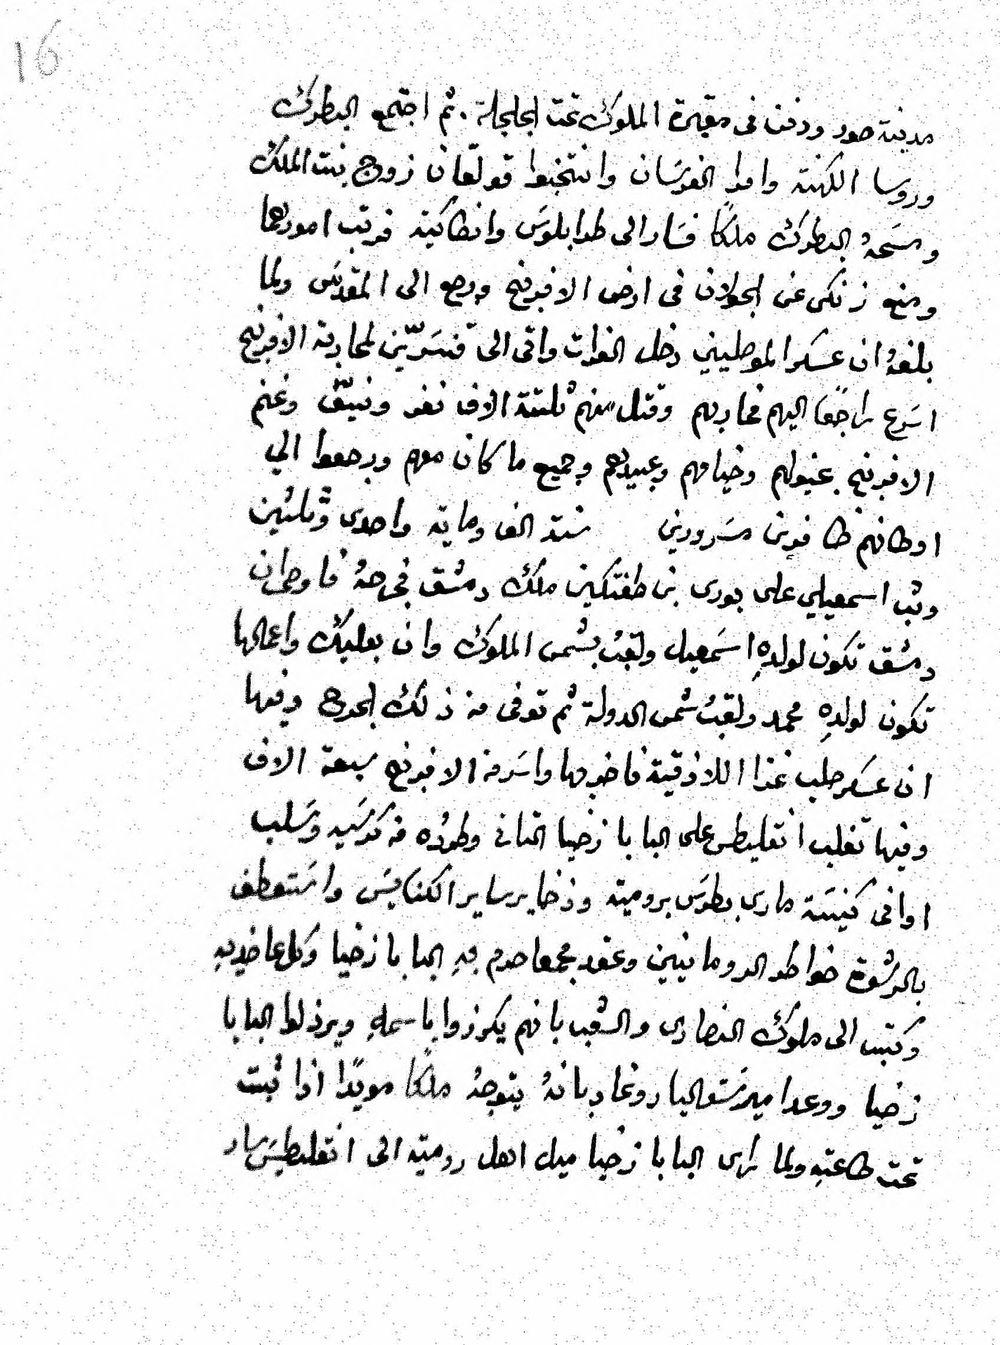 16
مدينة صور ودفن في مقبرة الملوك تحت الجلجلة. ثم اجتمع البطرك
وروسا الكهنة وامرا الفرسان وانتخبوا فولقان زوج بنت الملك
ومسحهُ البطرك ملكًا فسار الى طرابلوس وانطاكية فرتب امورهما
ومنع زنكي عن الجولان في ارض الافرنج ورجع الى المقدس ولما
بلغهُ ان عسكر الموصليين دخل الفرات واتى الى قنسرّين لمحاربة الافرنج
اسرع راجعًا اليهم فحاربهم وقتل منهم ثلثة الاف نفر ونيّف وغنم
الافرنج بخيولهم وخيامهم وعبيدهم وجميع ما كان معهم ورجعوا الي
اوطانهم ظافرين مسرورين سنة الف وماية واحدى وثلثين
وثب اسمعيلي على بوري بن طغتكين ملك دمشق فجرحهُ فاوصى ان
دمشق تكون لولدهِ اسمعيل ولقبهُ بشمس الملوك وان بعلبك واعمالها
تكون لولدهِ محمد ولقبهُ شمس الدولة ثم توفى من ذلك الجرح وفيها
ان عسكر حلب غزا اللاذقية فاخربها واسر من الافرنج سبعة الاف
وفيها تغلب انقليطس على البابا زخيا الثاني وطردُه من كرسيه وسلب
اواني كنيسة ماري بطرس برومية وذخاير ساير الكنايس واستعطف
بالرشوة خواطر الرومانيين وعقد مجمعا حرم بهِ البابا زخيا وكل عاضديه
وكتب الى ملوك النصارى والشعب بانهم يكرزوا باسمهِ ويرذلوا البابا
زخيا ووعد امير تسقاليا روغار بانهُ يتوجهُ ملكًا مويدًا اذا ثبت
تحت طاعتهِ ولما راى البابا زخيا ميل اهل رومية الى انقليطس سار